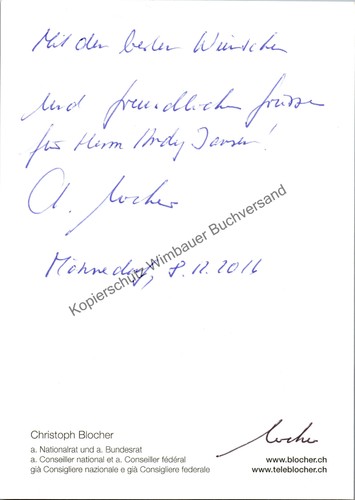 Mit den besten Wünschen
und freundlichen Grüssen
für Herrn Andy Jansen!
C. Blocher
Männedorf, 8.12.2016
Kopierschutz Wimbauer Buchversand
Christoph Blocher
a. Nationalrat und a. Bundesrat
a. Conseiller national et a. Conseiller fédéral
già Consigliere nazionale e già Consigliere federale
Blocher
www.blocher.ch
www.teleblocher.ch